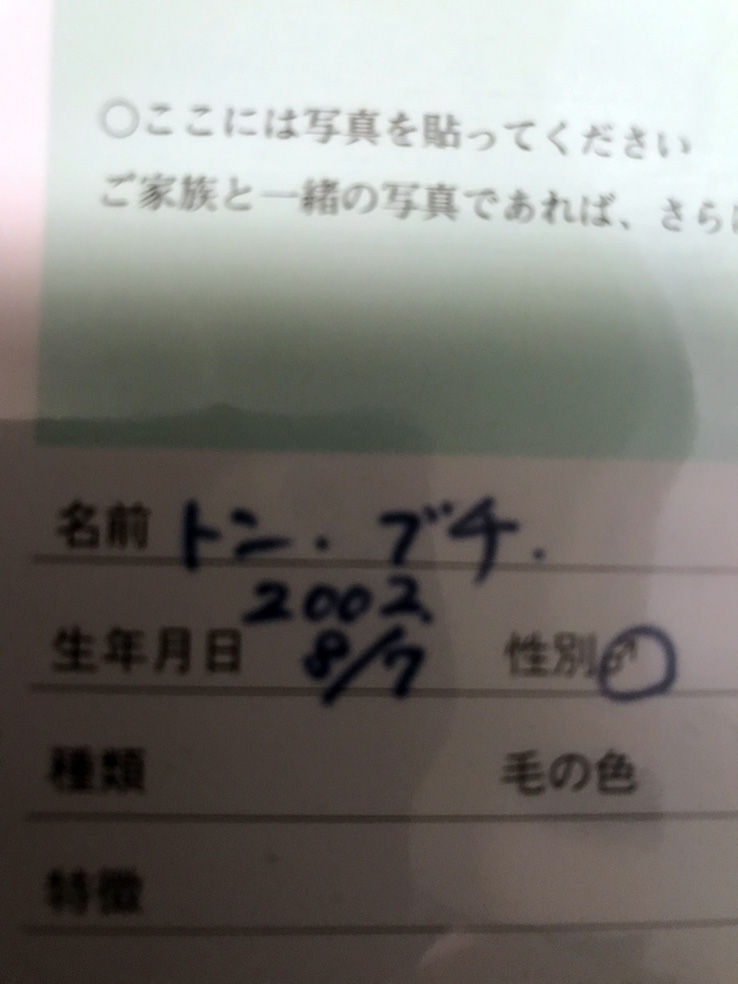 ○ここには写真を貼ってください
ご家族と一緒の写真であれば、さらに
名前 トン・ブチ.
2002.
生年月日 8/7 性別 ♂
種類 毛の色
特徴